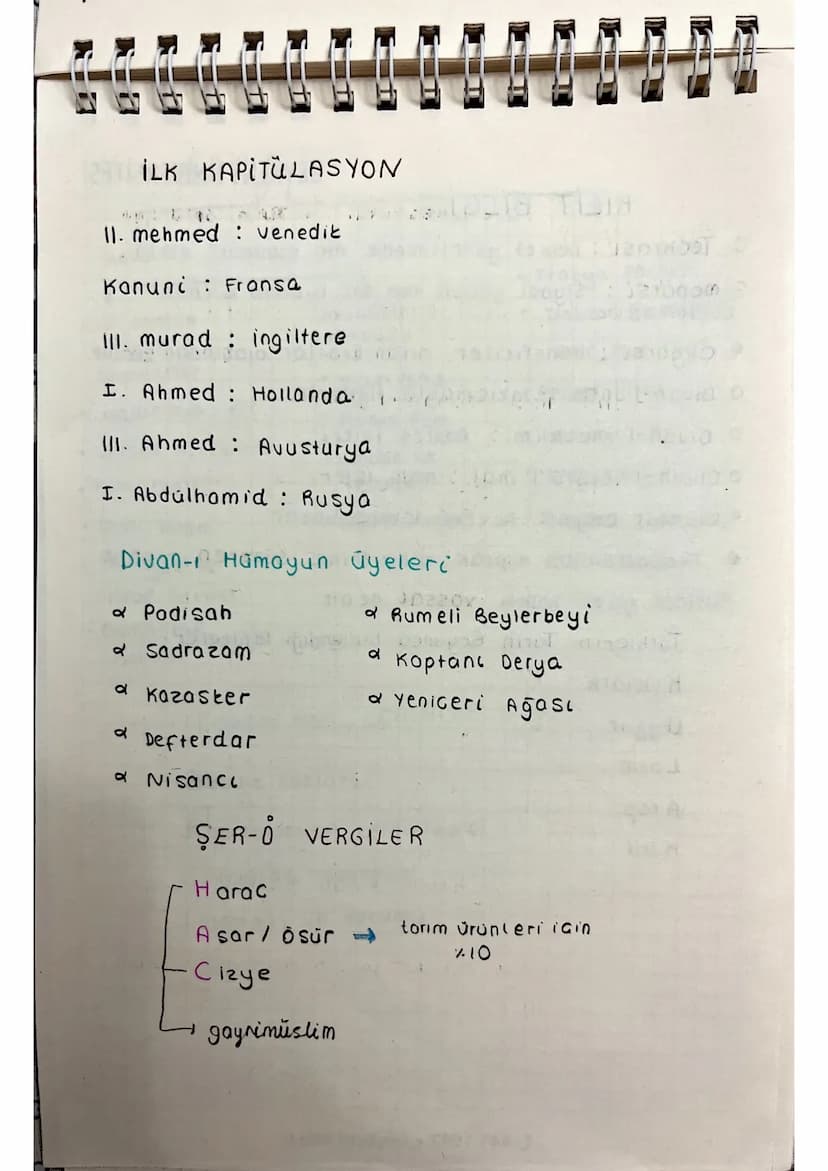 İLK KAPİTÜLASYON
II. mehmed : venedik
Kanuni : Fransa
III. murad : ingiltere
I. Ahmed : Hollanda
III. Ahmed : Avusturya
I. Abdülhamid : Rusya
Divan-ı Hümayun üyeleri
Padisah
Sadrazam
Kazasker
Defterdar
Nisancı
Rumeli Beylerbeyi
Kaptanı Derya
Yeniceri Ağası
ŞER-Ö VERGİLER
Harac
Asar / ösür → tarım ürünleri icin
%10
Cizye
gayrimüslim